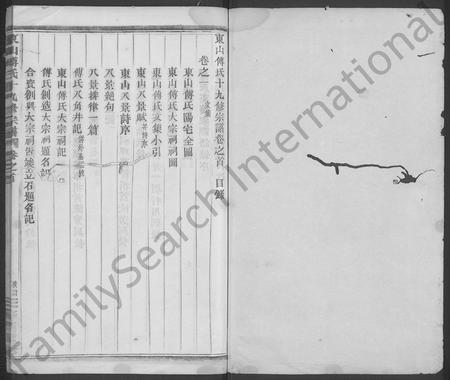 東山傅氏十九修宗譜卷之首 目錄
卷之一 文集
東山傅氏陽宅全圖
東山傅氏大宗祠圖
東山傅氏文集小引
東山八景賦 并詩序
東山八景詩序
八景絕句
八景排律一篇
傅氏八角井記
東山傅氏大宗祠記
傅氏創造大宗祠題名記
合衆創興大宗祠告竣立石題名記
東山傅氏十九修宗譜 卷之首
FamilySearch International